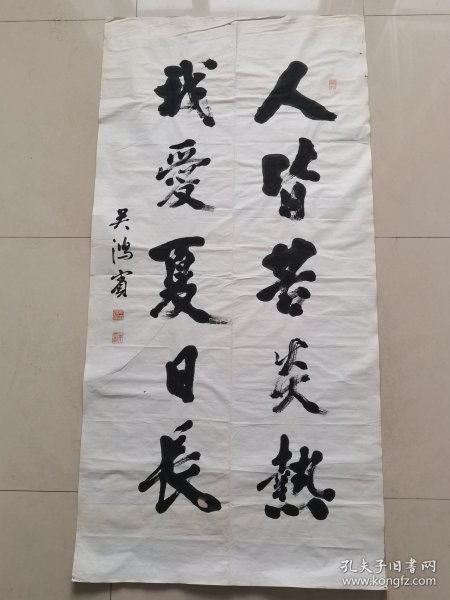 人皆苦炎熱
我愛夏日長
吴鴻賓
孔夫子旧书网
www.kongfz.com